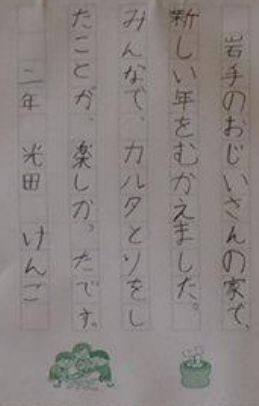 岩手のおじいさんの家で、
新しい年をむかえました。
みんなで、カルタとりをし
たことが、楽しかったです。
二年 光田 けんご